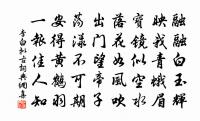 融融白玉輝
映我青蛾眉
寶鏡似空水
落花如風吹
出門望帝子
蕩漾不可期
安得黃鶴羽
一報佳人知
李白